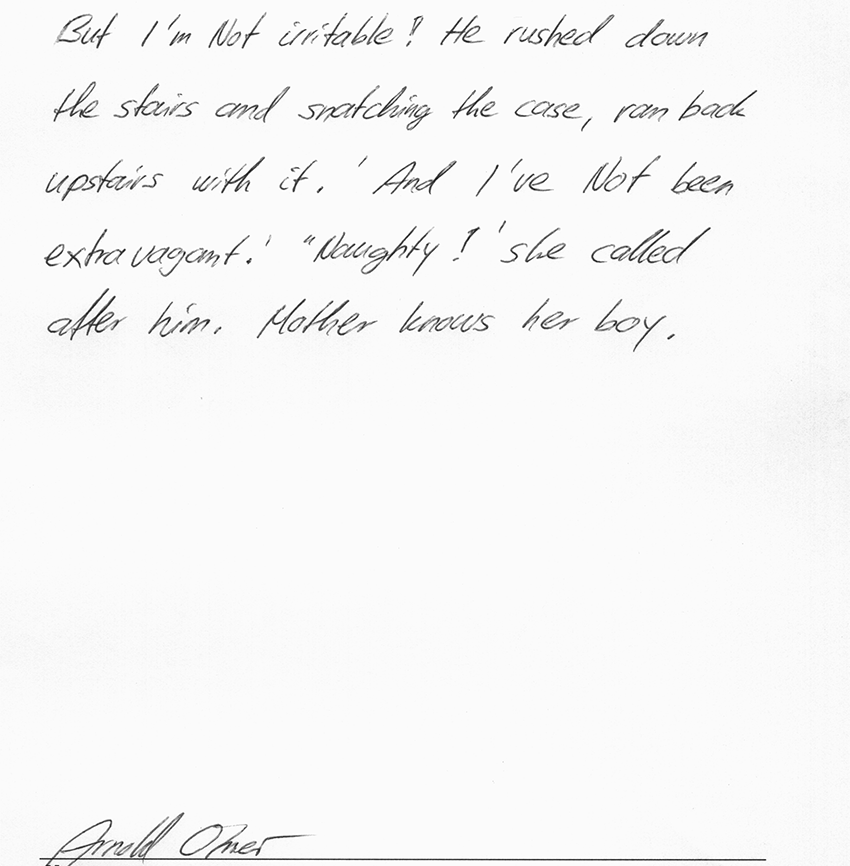 But I'm Not irritable! He rushed down
the stairs and snatching the case, ran back
upstairs with it. ' And I've Not been
extravagant.' "Naughty! 'she called
after him. Mother knows her boy.
Arnold